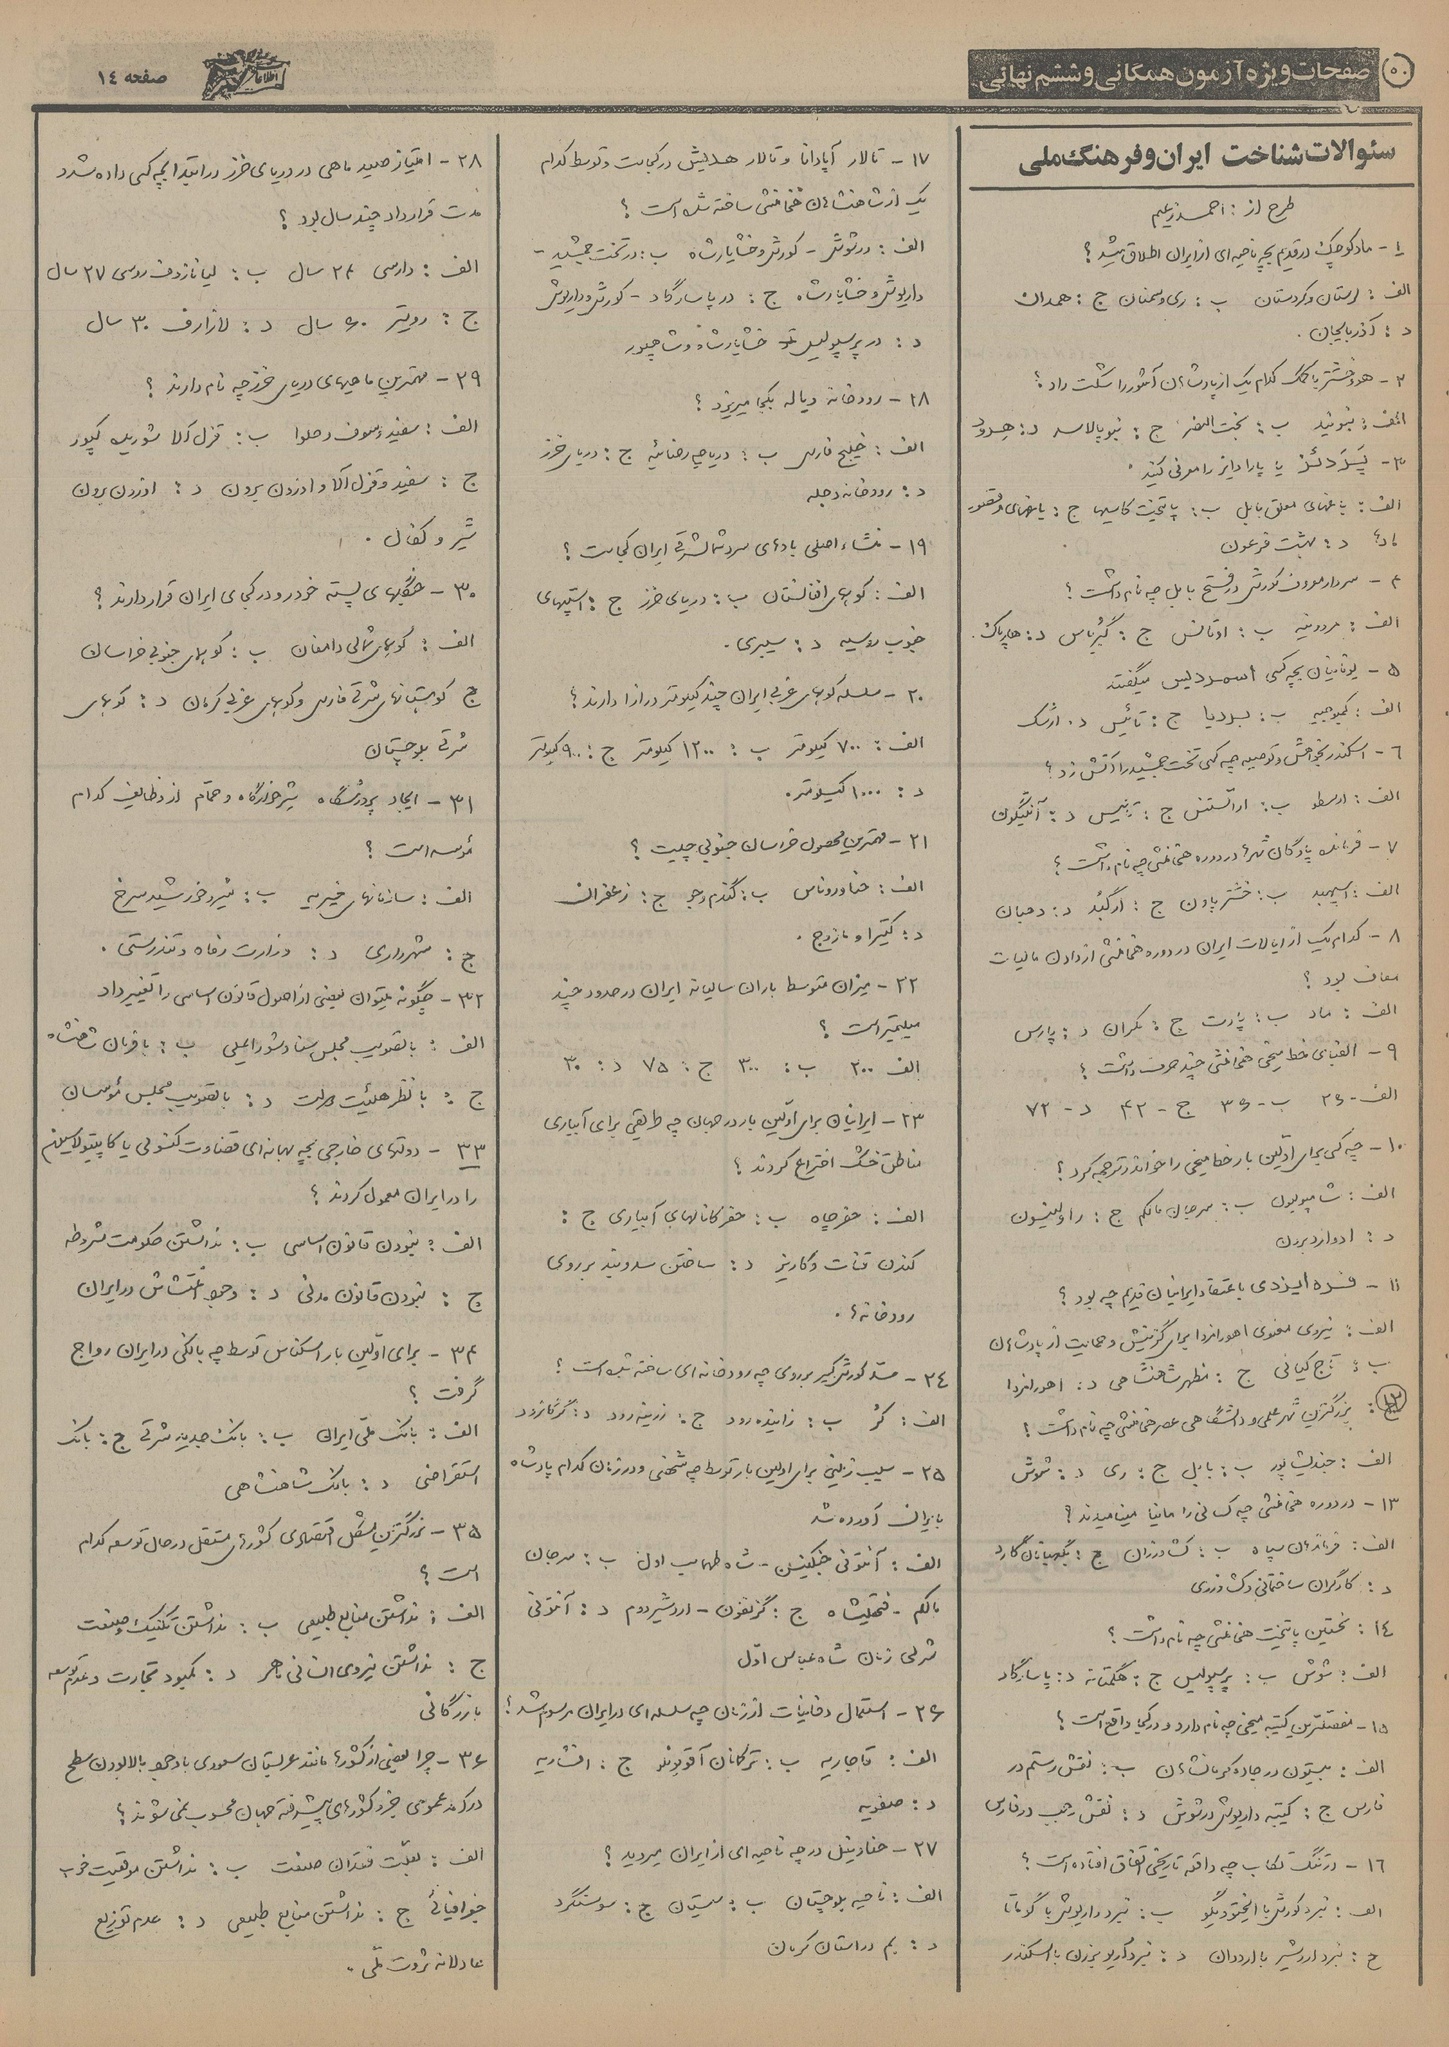 ۵۰ صفحات ویژه آزمون همگانی و ششم نهائی
اطلاعات
صفحه ۱۴
سئوالات شناخت ایران و فرهنگ ملی
طرح از : احمد زعیم
۱ - ماد کوچک در قدیم بچه ناحیه‌ای از ایران اطلاق میشد ؟
الف : لرستان و کردستان ب : ری و سمنان ج : همدان
د : آذربایجان .
۲ - هووخشتر با کمک کدام یک از پادشاهان آشور را شکست داد ؟
الف : نبونید ب : بخت النصر ج : نبوپالاسد د :
۳ - پَردئز یا پارادایز را معرفی کنید .
الف : باغهای معلق بابل ب : پایتخت کاسیها ج : باغهای و قصور
ماد د : بهشت فرعون
۴ - سردار معروف کورش در فتح بابل چه نام داشت ؟
الف : مردونیه ب : اوتانس ج : گبریاس د : هارپاک .
۵ - یونانیان بچه کسی اسمردیس میگفتند
الف : کمبوجیه ب : بردیا ج : تائیس د . ارشک
۶ - اسکندر بخواهش و توصیه چه کسی تخت جمشید را آتش زد ؟
الف : ارسطو ب : ج : تائیس د : آنتیگون
۷ - فرمانده پادگان شهرها در دوره هخامنشی چه نام داشت ؟
الف : اسپهبد ب : خشتر پاون ج : ارگبُد د : دهبان
۸ - کدام یک از ایالات ایران در دوره هخامنشی از دادن مالیات
معاف بود ؟
الف : ماد ب : پارت ج : مکران د : پارس
۹ - الفبای خط میخی هخامنشی چند حرف داشت ؟
الف - ۲۶ ب - ۳۶ ج - ۴۲ د - ۷۲
۱۰ - چه کسی برای اولین بار خط میخی را خواند و ترجمه کرد ؟
الف : شامپولیون ب : سرجان مالکم ج : راولینسون
د : ادوارد برون
۱۱ - فره ایزدی باعتقاد ایرانیان قدیم چه بود ؟
الف : نیروی معنوی اهورامزدا برای گزینش و حمایت از پادشاهان
ب : تاج کیانی ج : مظهر شاهنشاهی د : اهورامزدا
۱۲ : بزرگترین شهر علمی و دانشگاهی عصر هخامنشی چه نام داشت ؟
الف : جندیشاپور ب : بابل ج : ری د : شوش
۱۳ - در دوره هخامنشی چه کسانی را مانیا مینامیدند ؟
الف : فرماندهان سپاه ب : کشاورزان ج : نگهبانان گارد
د : کارگران ساختمانی و کشاورزی
۱۴ : نخستین پایتخت هخامنشی چه نام داشت ؟
الف : شوش ب : پرسپولیس ج : هگمتانه د : پاسارگاد
۱۵ - مفصلترین کتیبه میخی چه نام دارد و در کجا واقع است ؟
الف : بیستون در جاده کرمانشاهان ب : نقش رستم در
فارس ج : کتیبه داریوش در شوش د : نقش رجب در فارس
۱۶ - در تنگ تکاب چه واقعه تاریخی اتفاق افتاده است ؟
الف : نبرد کورش با ایختوویگو ب : نبرد داریوش با گوماتا
ج : نبرد اردشیر با اردوان د : نبرد آریوبرزن با اسکندر
۱۷ - تالار آپادانا و تالار هدیش در کجاست و توسط کدام
یک از شاهنشاهان هخامنشی ساخته شده است ؟
الف : در شوش - کورش و خشایارشاه ب : در تخت جمشید -
داریوش و خشایارشاه ج : در پاسارگاد - کورش و داریوش
د : در پرسپولیس خشایارشاه و شاهپور
۱۸ - رودخانه دیاله بکجا میریزد ؟
الف : خلیج فارس ب : دریاچه رضائیه ج : دریای خزر
د : رودخانه دجله
۱۹ - منشاء اصلی بادهای سرد شمالشرقی ایران کجاست ؟
الف : کوههای افغانستان ب : دریای خزر ج : استپهای
جنوب روسیه د : سیبری .
۲۰ - سلسله کوههای غربی ایران چند کیلومتر درازا دارند ؟
الف : ۷۰۰ کیلومتر ب : ۱۲۰۰ کیلومتر ج : ۹۰۰ کیلومتر
د : ۱۰۰۰ کیلومتر .
۲۱ - مهمترین محصول خراسان جنوبی چیست ؟
الف : حنا و روناس ب : گندم و جو ج : زعفران
د : کتیرا و مازوج .
۲۲ - میزان متوسط باران سالیانه ایران در حدود چند
میلیمتر است ؟
الف ۲۰۰ ب : ۳۰۰ ج : ۷۵ د : ۳۰
۲۳ - ایرانیان برای اولین بار در جهان چه طریقی برای آبیاری
مناطق خشک اختراع کردند ؟
الف : حفر چاه ب : حفر کانالهای آبیاری ج :
کندن قنات و کاریز د : ساختن سد و بند بر روی
رودخانه‌ها .
۲۴ - سد کورش کبیر بر روی چه رودخانه‌ای ساخته شده است ؟
الف : کُر ب : زاینده رود ج : زرینه رود د : گرگانرود
۲۵ - سیب زمینی برای اولین بار توسط چه شخصی و در زمان کدام پادشاه
بایران آورده شد
الف : آنتونی جنکینسن - شاه طهماسب اول ب : سرجان
مالکم - فتحعلیشاه ج : گزنفون - اردشیر دوم د : آنتونی
شرلی زمان شاه عباس اوّل
۲۶ - استعمال دخانیات از زمان چه سلسله‌ای در ایران مرسوم شد ؟
الف : قاجاریه ب : ترکمانان آق قویونلو ج : افشاریه
د : صفویه
۲۷ - حنا و نیل در چه ناحیه‌ای از ایران میروید ؟
الف : ناحیه بلوچستان ب : سیستان ج : سوسنگرد
د : بم در استان کرمان
۲۸ - امتیاز صید ماهی در دریای خزر در ابتدا بچه کسی داده شد و
مدت قرارداد چند سال بود ؟
الف : دارسی ۲۴ سال ب : لیانازوف روسی ۲۷ سال
ج : رویتر ۶۰ سال د : لازارف ۳۰ سال
۲۹ - مهمترین ماهیهای دریای خزر چه نام دارند ؟
الف : سفید و سوف و حلوا ب : قزل آلا شوریده کپور
ج : سفید و قزل آلا و اوزون برون د : اوزون برون
شیر و کفال .
۳۰ - جنگلهای پسته خودرو در کجای ایران قرار دارند ؟
الف : کوههای شمالی دامغان ب : کوههای جنوبی خراسان
ج کوهستانهای شرقی فارس و کوههای غربی کرمان د : کوههای
شرقی بلوچستان
۳۱ - ایجاد پرورشگاه شیرخوارگاه و حمام از وظایف کدام
مؤسسه است ؟
الف : سازمانهای خیریه ب : شیر و خورشید سرخ
ج : شهرداری د : وزارت رفاه و تندرستی .
۳۲ - چگونه میتوان بعضی از اصول قانون اساسی را تغییر داد
الف : با تصویب مجلس سنا و شورایملی ب : با فرمان شاهنشاه
ج : با نظر هیئت دولت د : با تصویب مجلس مؤسسان
۳۳ - دولتهای خارجی بچه بهانه‌ای قضاوت کنسولی یا کاپیتولاسیون
را در ایران معمول کردند ؟
الف : نبودن قانون اساسی ب : نداشتن حکومت مشروطه
ج : نبودن قانون مدنی د : وجود اغتشاش در ایران
۳۴ - برای اوّلین بار اسکناس توسط چه بانکی در ایران رواج
گرفت ؟
الف : بانک ملّی ایران ب : بانک جدید شرقی ج : بانک
استقراضی د : بانک شاهنشاهی
۳۵ - بزرگترین مشکل اقتصادی کشورهای مستقل در حال توسعه کدام
است ؟
الف : نداشتن منابع طبیعی ب : نداشتن تکنیک و صنعت
ج : نداشتن نیروی انسانی ماهر د : کمبود تجارت و عدم توسعه
بازرگانی
۳۶ - چرا بعضی از کشورها مانند عربستان سعودی با وجود بالا بودن سطح
درآمد عمومی جزو کشورهای پیشرفته جهان محسوب نمی شوند ؟
الف : بعلّت فقدان صنعت ب : نداشتن موقعیت خوب
جغرافیائی ج : نداشتن منابع طبیعی د : عدم توزیع
عادلانه ثروت ملّی .